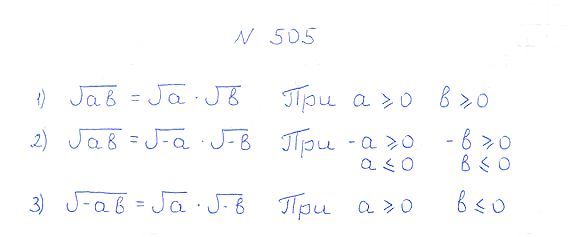 N 505
1) √ab = √a · √b При a ⩾ 0 b ⩾ 0
2) √ab = √-a · √-b При -a ⩾ 0 -b ⩾ 0
a ⩽ 0 b ⩽ 0
3) √-ab = √a · √-b При a ⩾ 0 b ⩽ 0